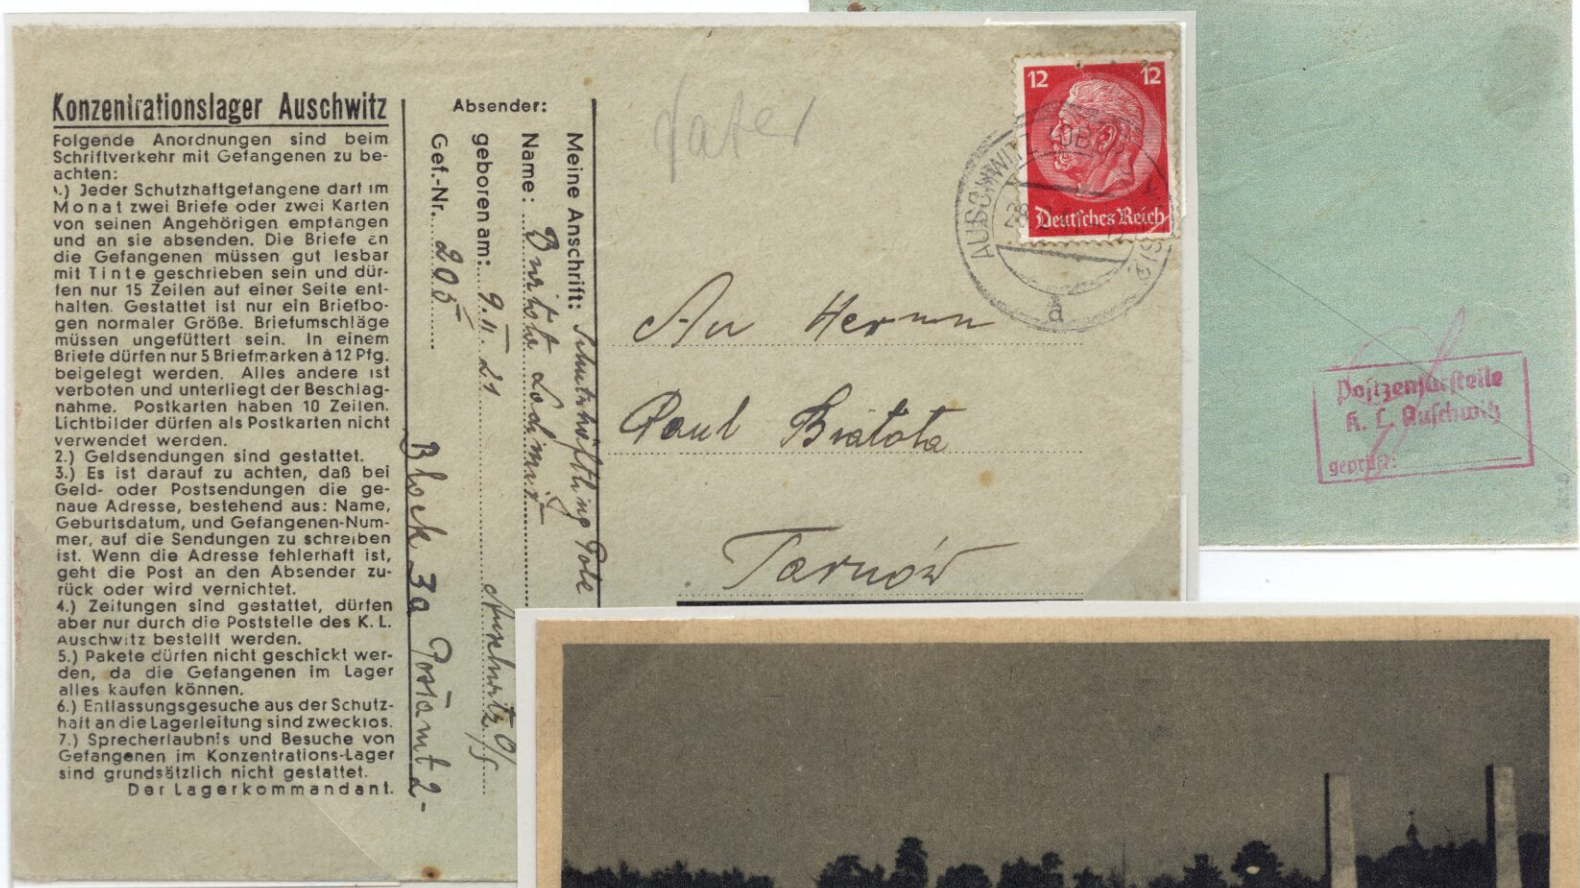 Konzentrationslager Auschwitz
Folgende Anordnungen sind beim
Schriftverkehr mit Gefangenen zu be-
achten:
1.) Jeder Schutzhaftgefangene darf im
Monat zwei Briefe oder zwei Karten
von seinen Angehörigen empfangen
und an sie absenden. Die Briefe an
die Gefangenen müssen gut lesbar
mit Tinte geschrieben sein und dür-
fen nur 15 Zeilen auf einer Seite ent-
halten. Gestattet ist nur ein Briefbo-
gen normaler Größe. Briefumschläge
müssen ungefüttert sein. In einem
Briefe dürfen nur 5 Briefmarken à 12 Pfg.
beigelegt werden. Alles andere ist
verboten und unterliegt der Beschlag-
nahme. Postkarten haben 10 Zeilen.
Lichtbilder dürfen als Postkarten nicht
verwendet werden.
2.) Geldsendungen sind gestattet.
3.) Es ist darauf zu achten, daß bei
Geld- oder Postsendungen die ge-
naue Adresse, bestehend aus: Name,
Geburtsdatum, und Gefangenen-Num-
mer, auf die Sendungen zu schreiben
ist. Wenn die Adresse fehlerhaft ist,
geht die Post an den Absender zu-
rück oder wird vernichtet.
4.) Zeitungen sind gestattet, dürfen
aber nur durch die Poststelle des K. L.
Auschwitz bestellt werden.
5.) Pakete dürfen nicht geschickt wer-
den, da die Gefangenen im Lager
alles kaufen können.
6.) Entlassungsgesuche aus der Schutz-
haft an die Lagerleitung sind zwecklos.
7.) Sprecherlaubnis und Besuche von
Gefangenen im Konzentrations-Lager
sind grundsätzlich nicht gestattet.
Der Lagerkommandant.
Absender:
Meine Anschrift: Schutzhäftling Pole
Name:
geboren am: 9.II.21 Auschwitz O/S
Gef.-Nr. 205
Block 3a Postamt 2-
Vater
12 12
Deutsches Reich
AUSCHWITZ
a
An Herrn
Paul
Tarnów
Postzensurstelle
K. L. Auschwitz
geprüft: